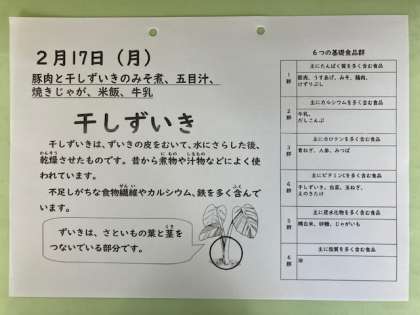 2月17日（月）
豚肉と干しずいきのみそ煮、五目汁、
焼きじゃが、米飯、牛乳
干しずいき
干しずいきは、ずいきの皮をむいて、水にさらした後、
乾燥させたものです。昔から煮物や汁物などによく使
われています。
不足しがちな食物繊維やカルシウム、鉄を多く含んで
います。
ずいきは、さといもの葉と茎を
つないでいる部分です。
6つの基礎食品群
1群
主にたんぱく質を多く含む食品
豚肉、うすあげ、みそ、鶏肉、
けずりぶし
2群
主にカルシウムを多く含む食品
牛乳、
だしこんぶ
3群
主にカロテンを多く含む食品
青ねぎ、人参、みつば
4群
主にビタミンCを多く含む食品
干しずいき、白菜、玉ねぎ、
えのきたけ
5群
主に炭水化物を多く含む食品
精白米、砂糖、じゃがいも
6群
主に脂質を多く含む食品